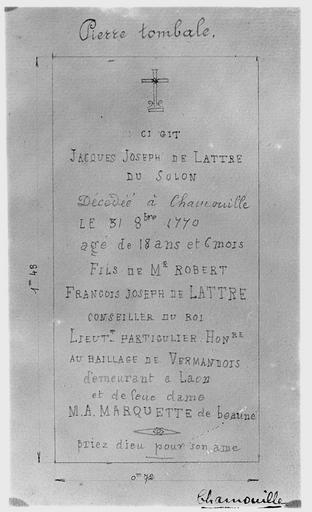 Pierre tombale.
CI GIT
JACQUES JOSEPH DE LATTRE
DU SOLON
Décédéé à Chamouille
LE 31 8bre 1770
agé de 18 ans et 6 mois
FILS DE MR ROBERT
FRANCOIS JOSEPH DE LATTRE
CONSEILLER DU ROI
LIEUTT PARTICULIER HONRE
AU BAILLAGE DE VERMANDOIS
demeurant a Laon
et de feue dame
M.A. MARQUETTE de beaune
priez dieu pour son ame
1m 48
0m 72
Chamouille